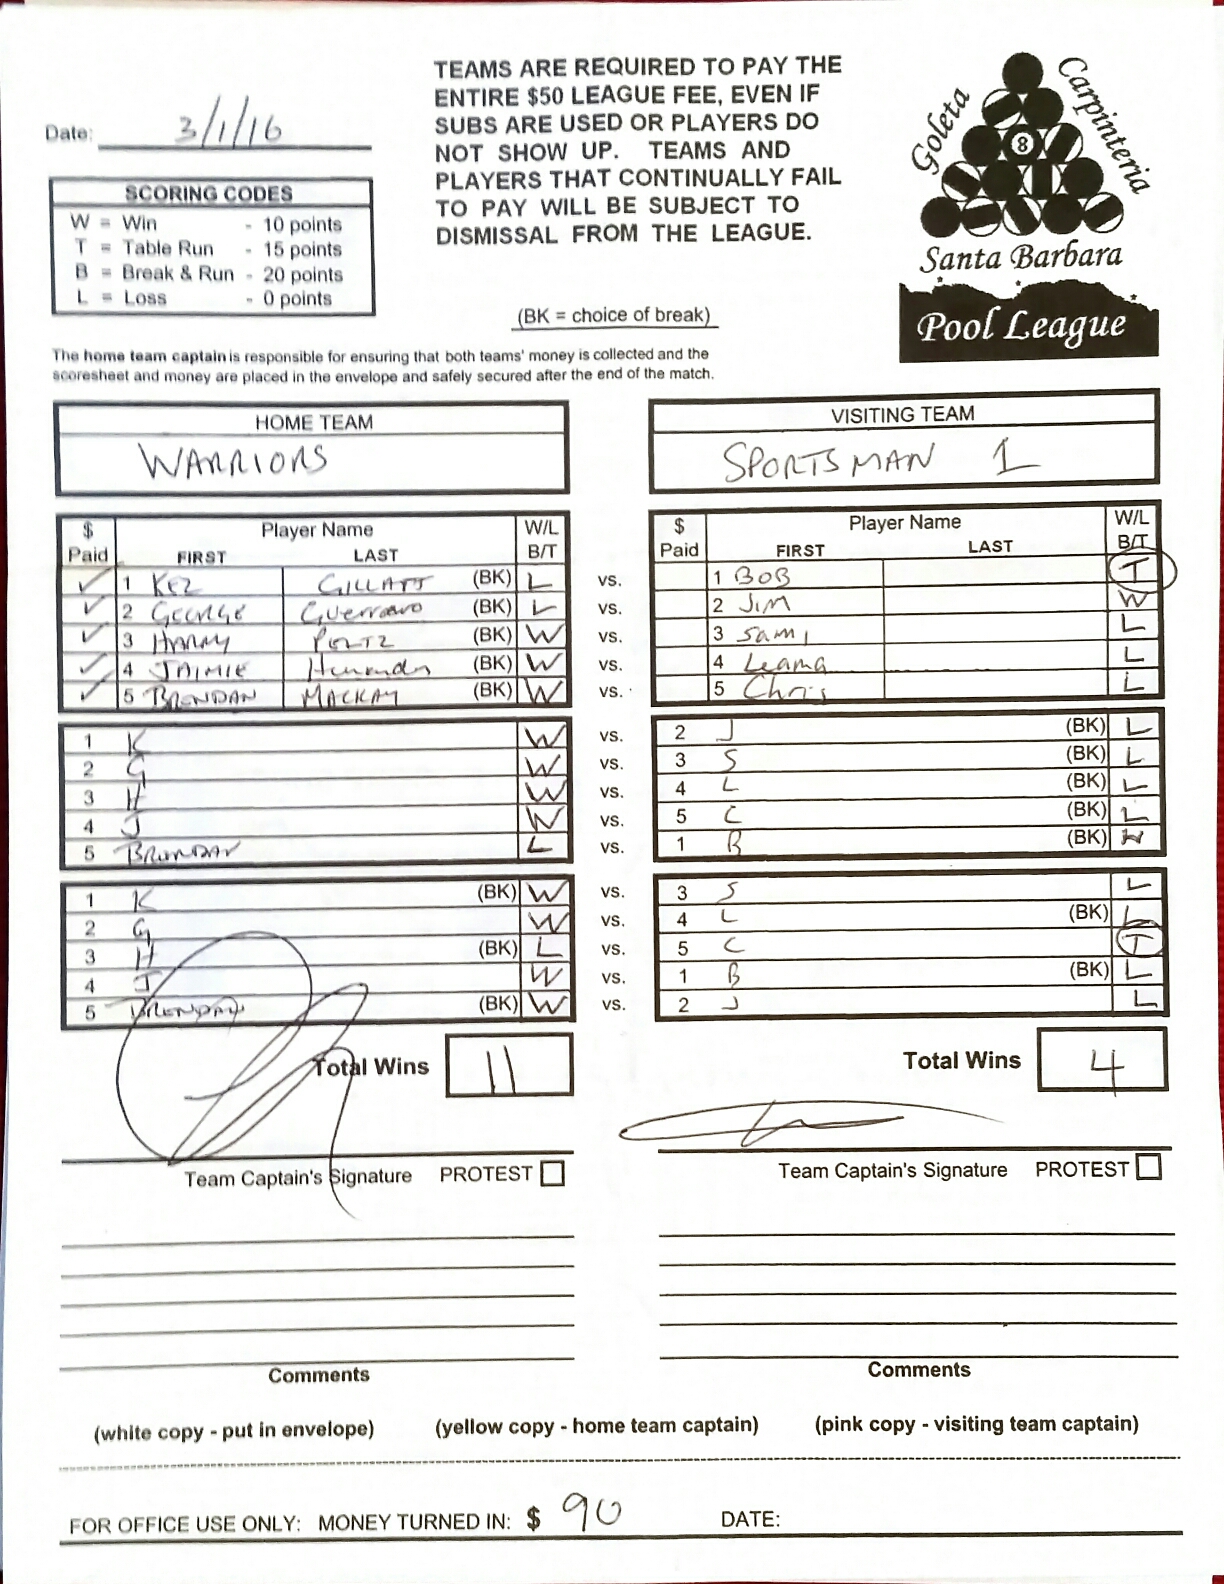 TEAMS ARE REQUIRED TO PAY THE
ENTIRE $50 LEAGUE FEE, EVEN IF
SUBS ARE USED OR PLAYERS DO
NOT SHOW UP. TEAMS AND
PLAYERS THAT CONTINUALLY FAIL
TO PAY WILL BE SUBJECT TO
DISMISSAL FROM THE LEAGUE.
Goleta
Carpinteria
8
Santa Barbara
Pool League
Date: 3/1/16
SCORING CODES
W = Win - 10 points
T = Table Run - 15 points
B = Break & Run - 20 points
L = Loss - 0 points
(BK = choice of break)
The home team captain is responsible for ensuring that both teams' money is collected and the
scoresheet and money are placed in the envelope and safely secured after the end of the match.
HOME TEAM
WARRIORS
VISITING TEAM
SPORTSMAN 1
$ Paid Player Name FIRST LAST W/L B/T
$ Paid Player Name FIRST LAST W/L B/T
1 KEZ GILLATT (BK) L vs. 1 BOB T
2 GEORGE Guerraro (BK) L vs. 2 JIM W
3 HARRY (BK) W vs. 3 Sami L
4 JAIMIE (BK) W vs. 4 Leama L
5 BRENDAN MACKAY (BK) W vs. 5 Chris L
1 K W vs. 2 J (BK) L
2 G W vs. 3 S (BK) L
3 H W vs. 4 L (BK) L
4 J W vs. 5 C (BK) L
5 BRENDAN L vs. 1 B (BK) W
1 K (BK) W vs. 3 S L
2 G W vs. 4 L (BK) L
3 H (BK) L vs. 5 C T
4 J W vs. 1 B (BK) L
5 BRENDAN (BK) W vs. 2 J L
Total Wins 11
Total Wins 4
Team Captain's Signature PROTEST
Team Captain's Signature PROTEST
Comments
Comments
(white copy - put in envelope) (yellow copy - home team captain) (pink copy - visiting team captain)
FOR OFFICE USE ONLY: MONEY TURNED IN: $ 90 DATE: